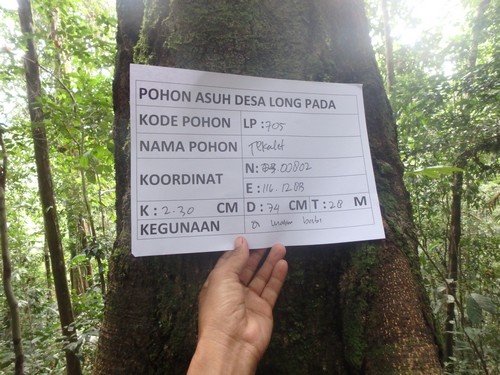 POHON ASUH DESA LONG PADA
KODE POHON LP : 705
NAMA POHON
KOORDINAT N: 03.00802
E : 116.1288
K : 2.30 CM D : 74 CM T : 28 M
KEGUNAAN